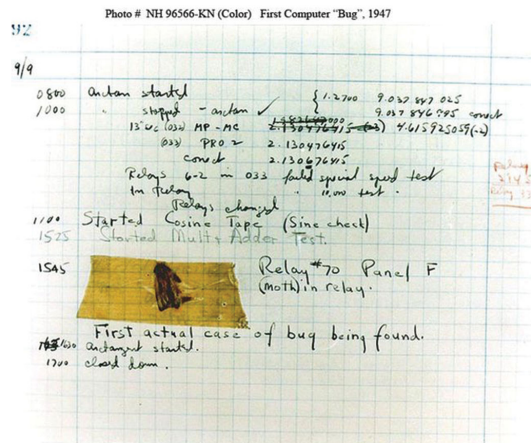 Photo # NH 96566-KN (Color) First Computer "Bug", 1947
92
9/9
0800 antan started
1000 " stopped - antan ✓ { 1.2700 9.037 847 025
9.037 846 995 conect
13"uc (032) MP-MC 2.130476415 4.615925059(-2)
(033) PRO 2 2.130476415
conect 2.130676415
Relays 6-2 in 033 failed special speed test
in relay " 10,000 test .
Relays changed
1100 Started Cosine Tape (Sine check)
1525 Started Mult + Adder Test.
1545 Relay #70 Panel F
(moth) in relay.
First actual case of bug being found.
1630 antangent started.
1700 closed down.